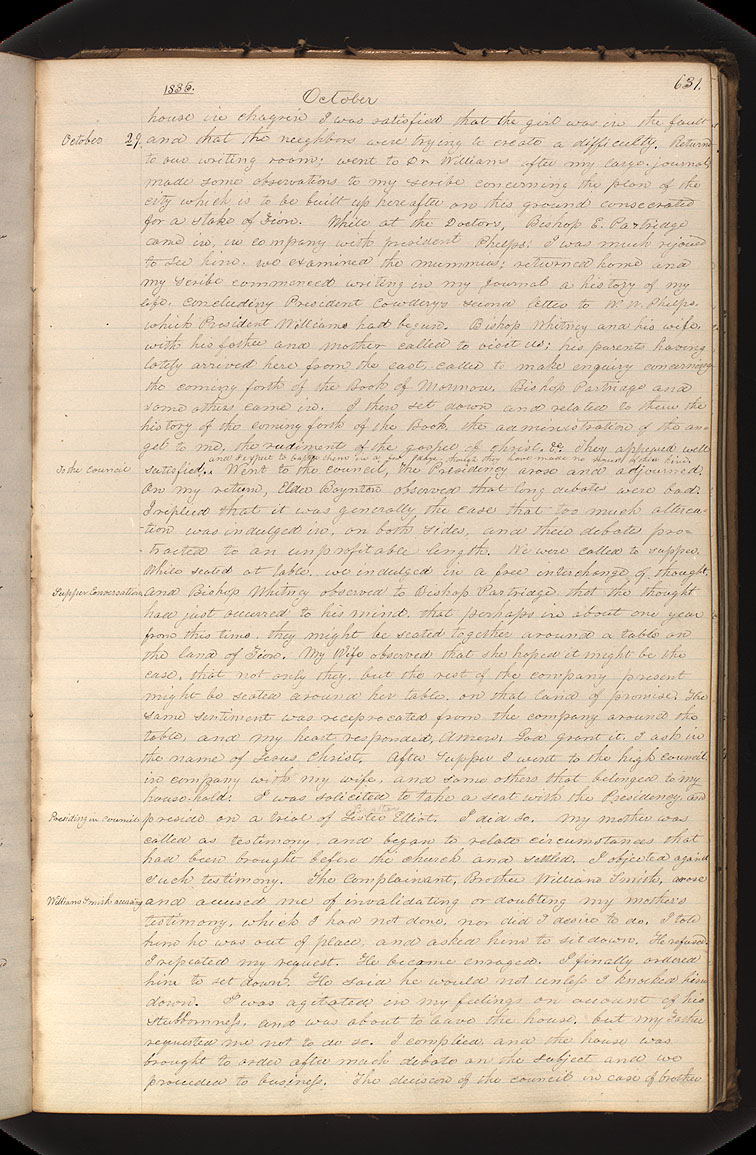 1835.
October
631.
house in chagrin I was satisfied that the girl was in the fault
October 29. and that the neighbors were trying to create a difficulty. Return
to our writing room; went to Dr Williams after my large journal;
made some observations to my scribe concerning the plan of the
city which is to be built up hereafter on this ground consecrated
for a stake of Zion. While at the Doctors, Bishop E. Partridge
came in, in company with president Phelps; I was much rejoiced
to see him. we examined the mummies; returned home and
my scribe commenced writing in my Journal a history of my
life. concluding President Cowdery's second letter to W. W. Phelps,
which President Williams had begun. Bishop Whitney and his wife,
with his father and mother called to visit us; his parents having
lately arrived here from the east, called to make enquiry concerning
the coming forth of the Book of Mormon. Bishop Partridge and
some others came in. I then set down and related to them the
history of the coming forth of the Book, the administration of the an-
gel to me, the rudiment of the gospel of christ. &c. They appeared well
and I expect to baptize them in a few days, though they have made no request of this kind.
To the council satisfied. Went to the council, the Presidency arose and adjourned.
On my return, Elder Boynton observed that long debates were bad.
I replied that it was generally the case that too much alterca-
-tion was indulged in, on both sides, and their debate pro-
tracted to an unprofitable length. We were called to supper.
While seated at table, we indulged in a free interchange of thought,
Supper Conversation and Bishop Whitney observed to Bishop Partridge that the thought
had just occurred to his mind, that perhaps in about one year
from this time, they might be seated together around a table on
the land of Zion. My Wife observed that she hoped it might be the
case, that not only they, but the rest of the company present
might be seated around her table, on that land of promise. The
same sentiment was reciprocated from the company around the
table, and my heart responded, Amen; God grant it, I ask in
the name of Jesus Christ. After supper I went to the high council
in company with my wife, and some others that belonged to my
house-hold: I was solicited to take a seat with the Presidency, and
Presiding in council preside on a trial of Sister Elliot. I did so. My mother was
called as testimony, and began to relate circumstances that
had been brought before the church and settled. I objected against
such testimony. The complainant, Brother William Smith, arose
William Smith accusing and accused me of invalidating or doubting my mother's
testimony, which I had not done, nor did I desire to do. I told
him he was out of place, and asked him to set down. He refused.
I repeated my request. He become enraged. I finally ordered
him to set down. He said he would not unless I knocked him
down. I was agitated in my feelings on account of his
stubbornness, and was about to leave the house, but my Father
requested me not to do so. I complied, and the house was
brought to order after much debate on the subject and we
proceeded to business. The decision of the council in case of brother